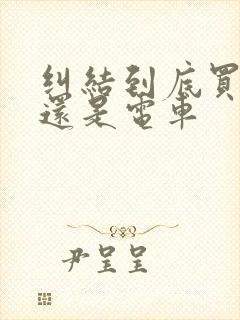 糾結到底買
還是電車
尹呈呈